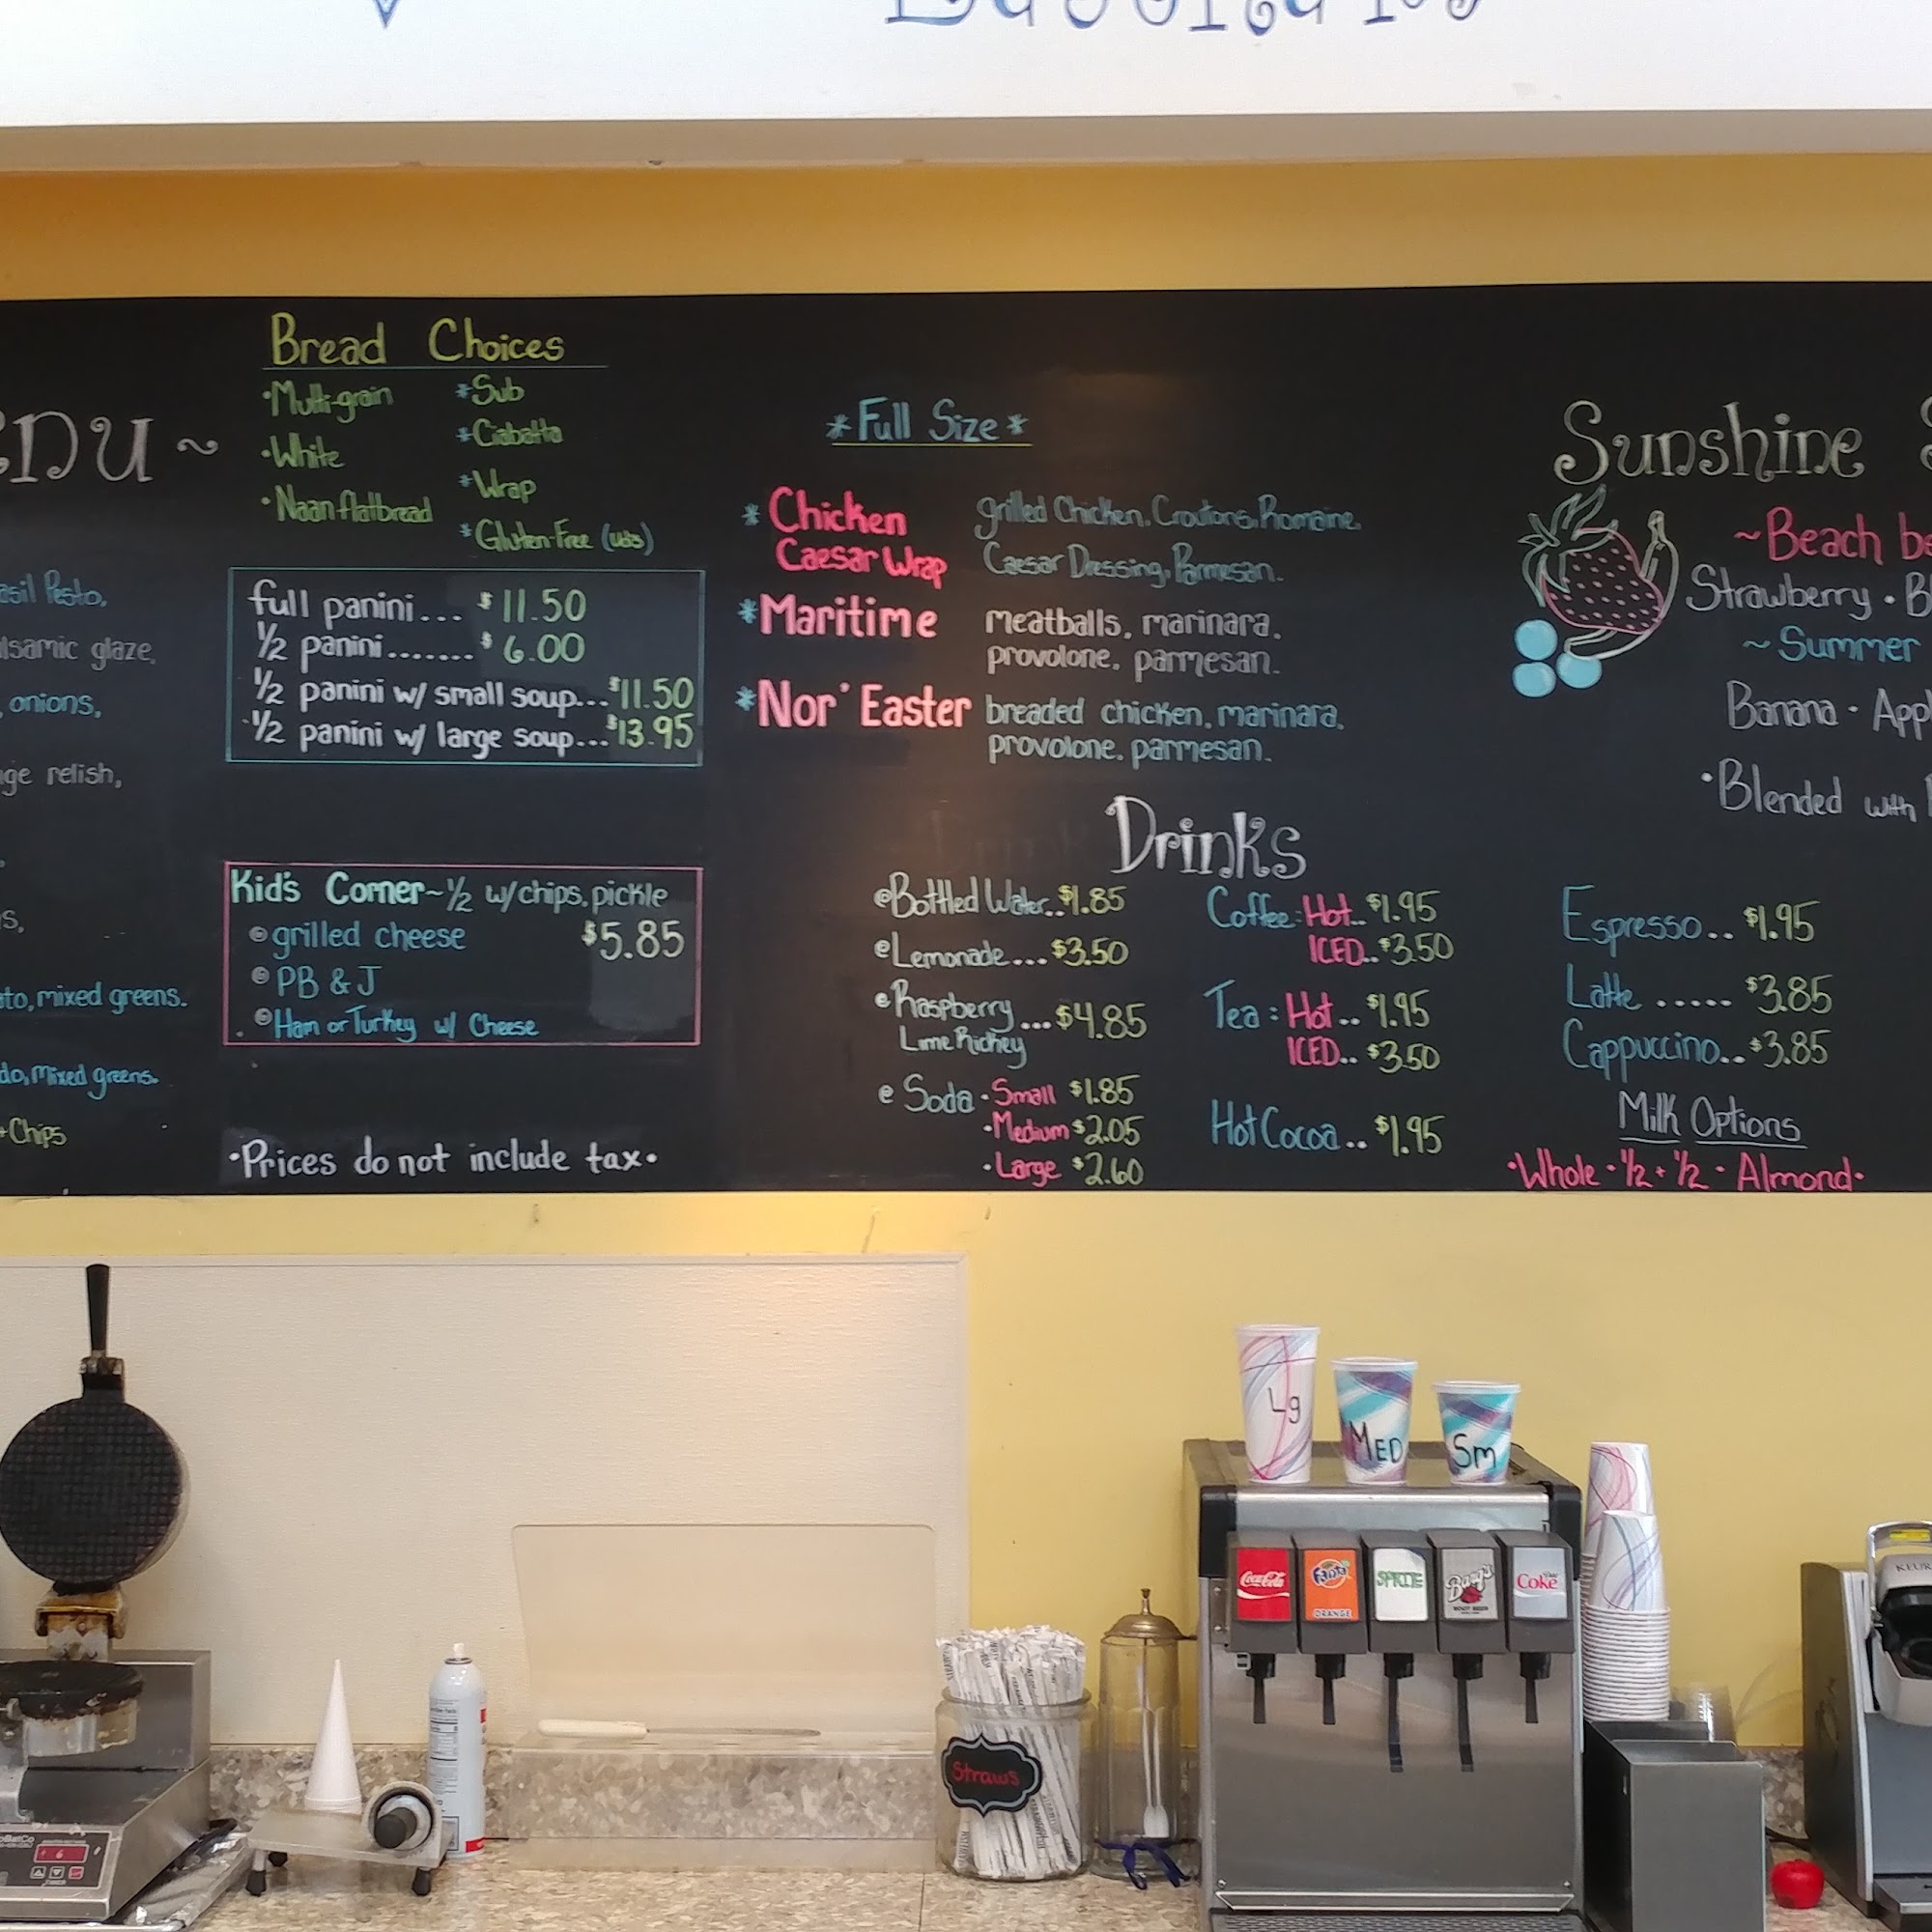 ~
asil Pesto,
alsamic glaze,
, onions,
ge relish,
s,
ato, mixed greens.
do, Mixed greens.
+ Chips
Bread Choices
•Multi-grain
•White
•Naan flatbread
*Sub
*Ciabatta
*Wrap
*Gluten-Free (V&S)
full panini... $11.50
1/2 panini....... $6.00
1/2 panini w/ small soup... $11.50
1/2 panini w/ large soup... $13.95
Kid's Corner~ 1/2 w/chips, pickle
grilled cheese $5.85
PB & J
Ham or Turkey w/ Cheese
•Prices do not include tax•
*Full Size*
*Chicken Caesar Wrap
grilled Chicken, Croutons, Romaine,
Caesar Dressing, Parmesan.
*Maritime meatballs, marinara,
provolone, parmesan.
*Nor' Easter breaded chicken, marinara,
provolone, parmesan.
Drinks
Bottled Water.. $1.85
Lemonade... $3.50
Raspberry
Lime Rickey ... $4.85
Soda • Small $1.85
•Medium $2.05
•Large $2.60
Coffee: Hot.. $1.95
ICED.. $3.50
Tea: Hot.. $1.95
ICED.. $3.50
Hot Cocoa.. $1.95
Sunshine
~Beach be
Strawberry • B
~Summer
Banana • App
•Blended with
Espresso.. $1.95
Latte ..... $3.85
Cappuccino.. $3.85
Milk Options
•Whole • 1/2 + 1/2 • Almond•
Lg
MED
Sm
Coca-Cola
Fanta
ORANGE
SPRITE
Barq's
ROOT BEER
Diet
Coke
Straws
KEUR
6